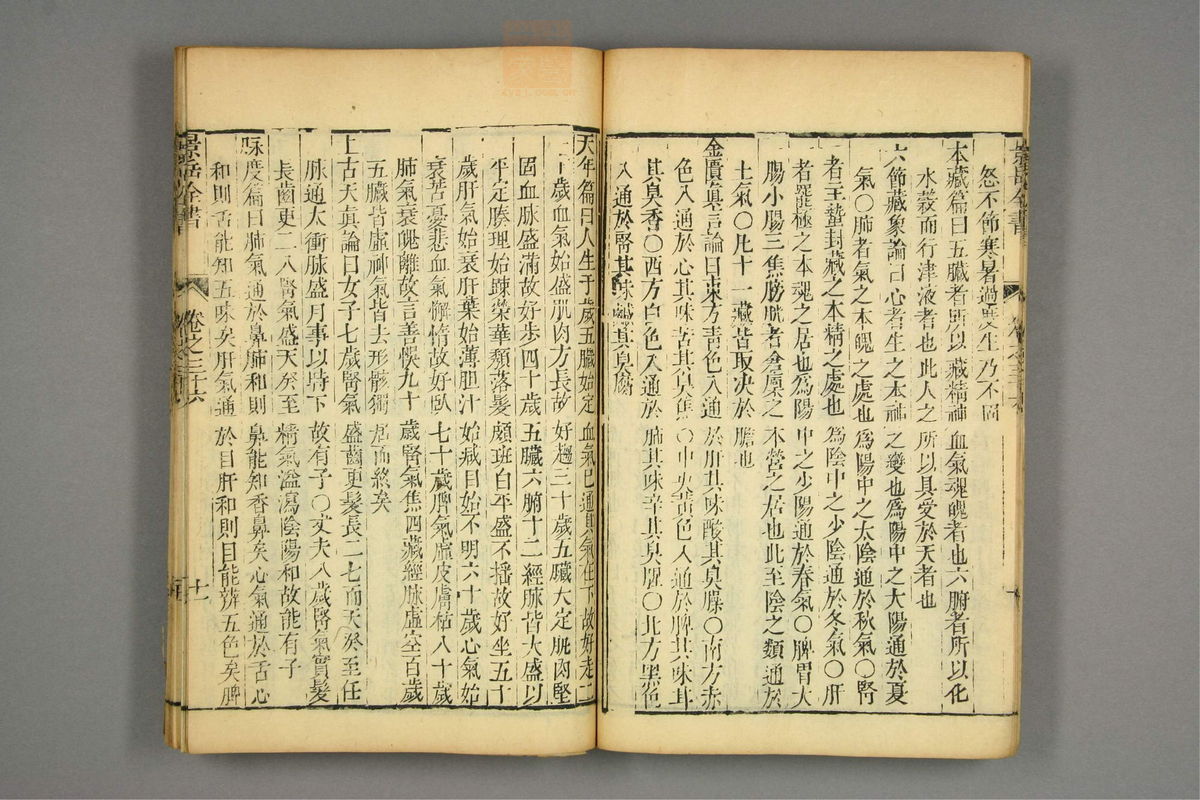 怒不節寒暑過度生乃不固
本藏篇曰五臟者所以藏精神血氣魂魄者也六腑者所以化
水穀而行津液者也此人之所以具受於天者也
六節藏象論曰心者生之本神之變也為陽中之太陽通於夏
氣〇肺者氣之本魄之處也為陽中之太陰通於秋氣〇腎
者主蟄封藏之本精之處也為陰中之少陰通於冬氣〇肝
者罷極之本魂之居也為陽中之少陽通於春氣〇脾胃大
腸小腸三焦膀胱者倉廩之本營之居也此至陰之類通於
土氣〇凡十一藏皆取決於膽也
金匱真言論曰東方青色入通於肝其味酸其臭臊〇南方赤
色入通於心其味苦其臭焦〇中央黃色入通於脾其味甘
其臭香〇西方白色入通於肺其味辛其臭腥〇北方黑色
入通於腎其味鹹其臭腐
天年篇曰人生十歲五臟始定血氣已通其氣在下故好走二
十歲血氣始盛肌肉方長故好趨三十歲五臟大定肌肉堅
固血脈盛滿故好步四十歲五臟六腑十二經脈皆大盛以
平定腠理始踈榮華頹落髮頗斑白平盛不搖故好坐五十
歲肝氣始衰肝葉始薄膽汁始減目始不明六十歲心氣始
衰苦憂悲血氣懈惰故好臥七十歲脾氣虛皮膚枯八十歲
肺氣衰魄離故言善悞九十歲腎氣焦四藏經脈虛空百歲
五臟皆虛神氣皆去形骸獨居而終矣
上古天真論曰女子七歲腎氣盛齒更髮長二七而天癸至任
脈通太衝脈盛月事以時下故有子〇丈夫八歲腎氣實髮
長齒更二八腎氣盛天癸至精氣溢瀉陰陽和故能有子
脈度篇曰肺氣通於鼻肺和則鼻能知香臭矣心氣通於舌心
和則舌能知五味矣肝氣通於目肝和則目能辨五色矣脾
景岳全書
卷之三十六
十一